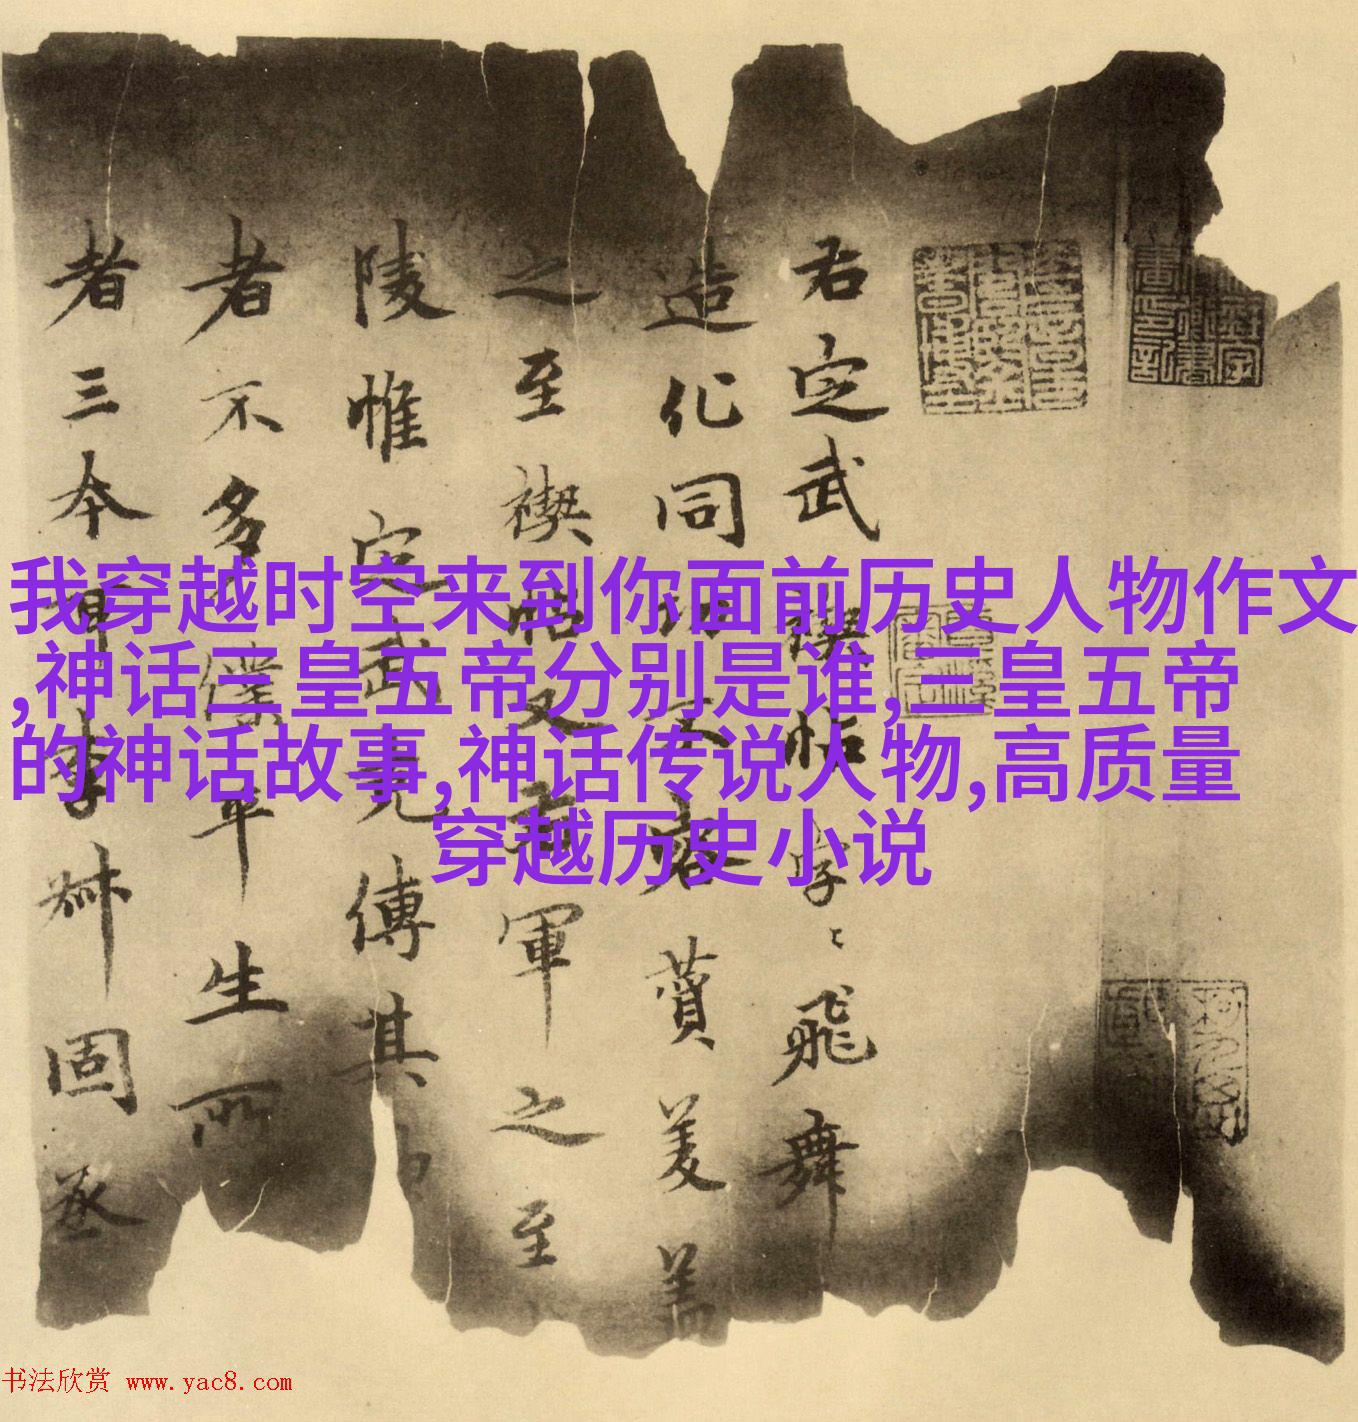 我穿越时空来到你面前历史人物作文
,神话三皇五帝分别是谁,三皇五帝
的神话故事,神话传说人物,高质量
穿越历史小说
君定武禊帖字〻飛舞
造化同美蓋
之至禊帖又右軍之至
陵惟定武見傳其
者不多僕平生所
者三本李叔固丞
书法欣赏 www.yac8.com